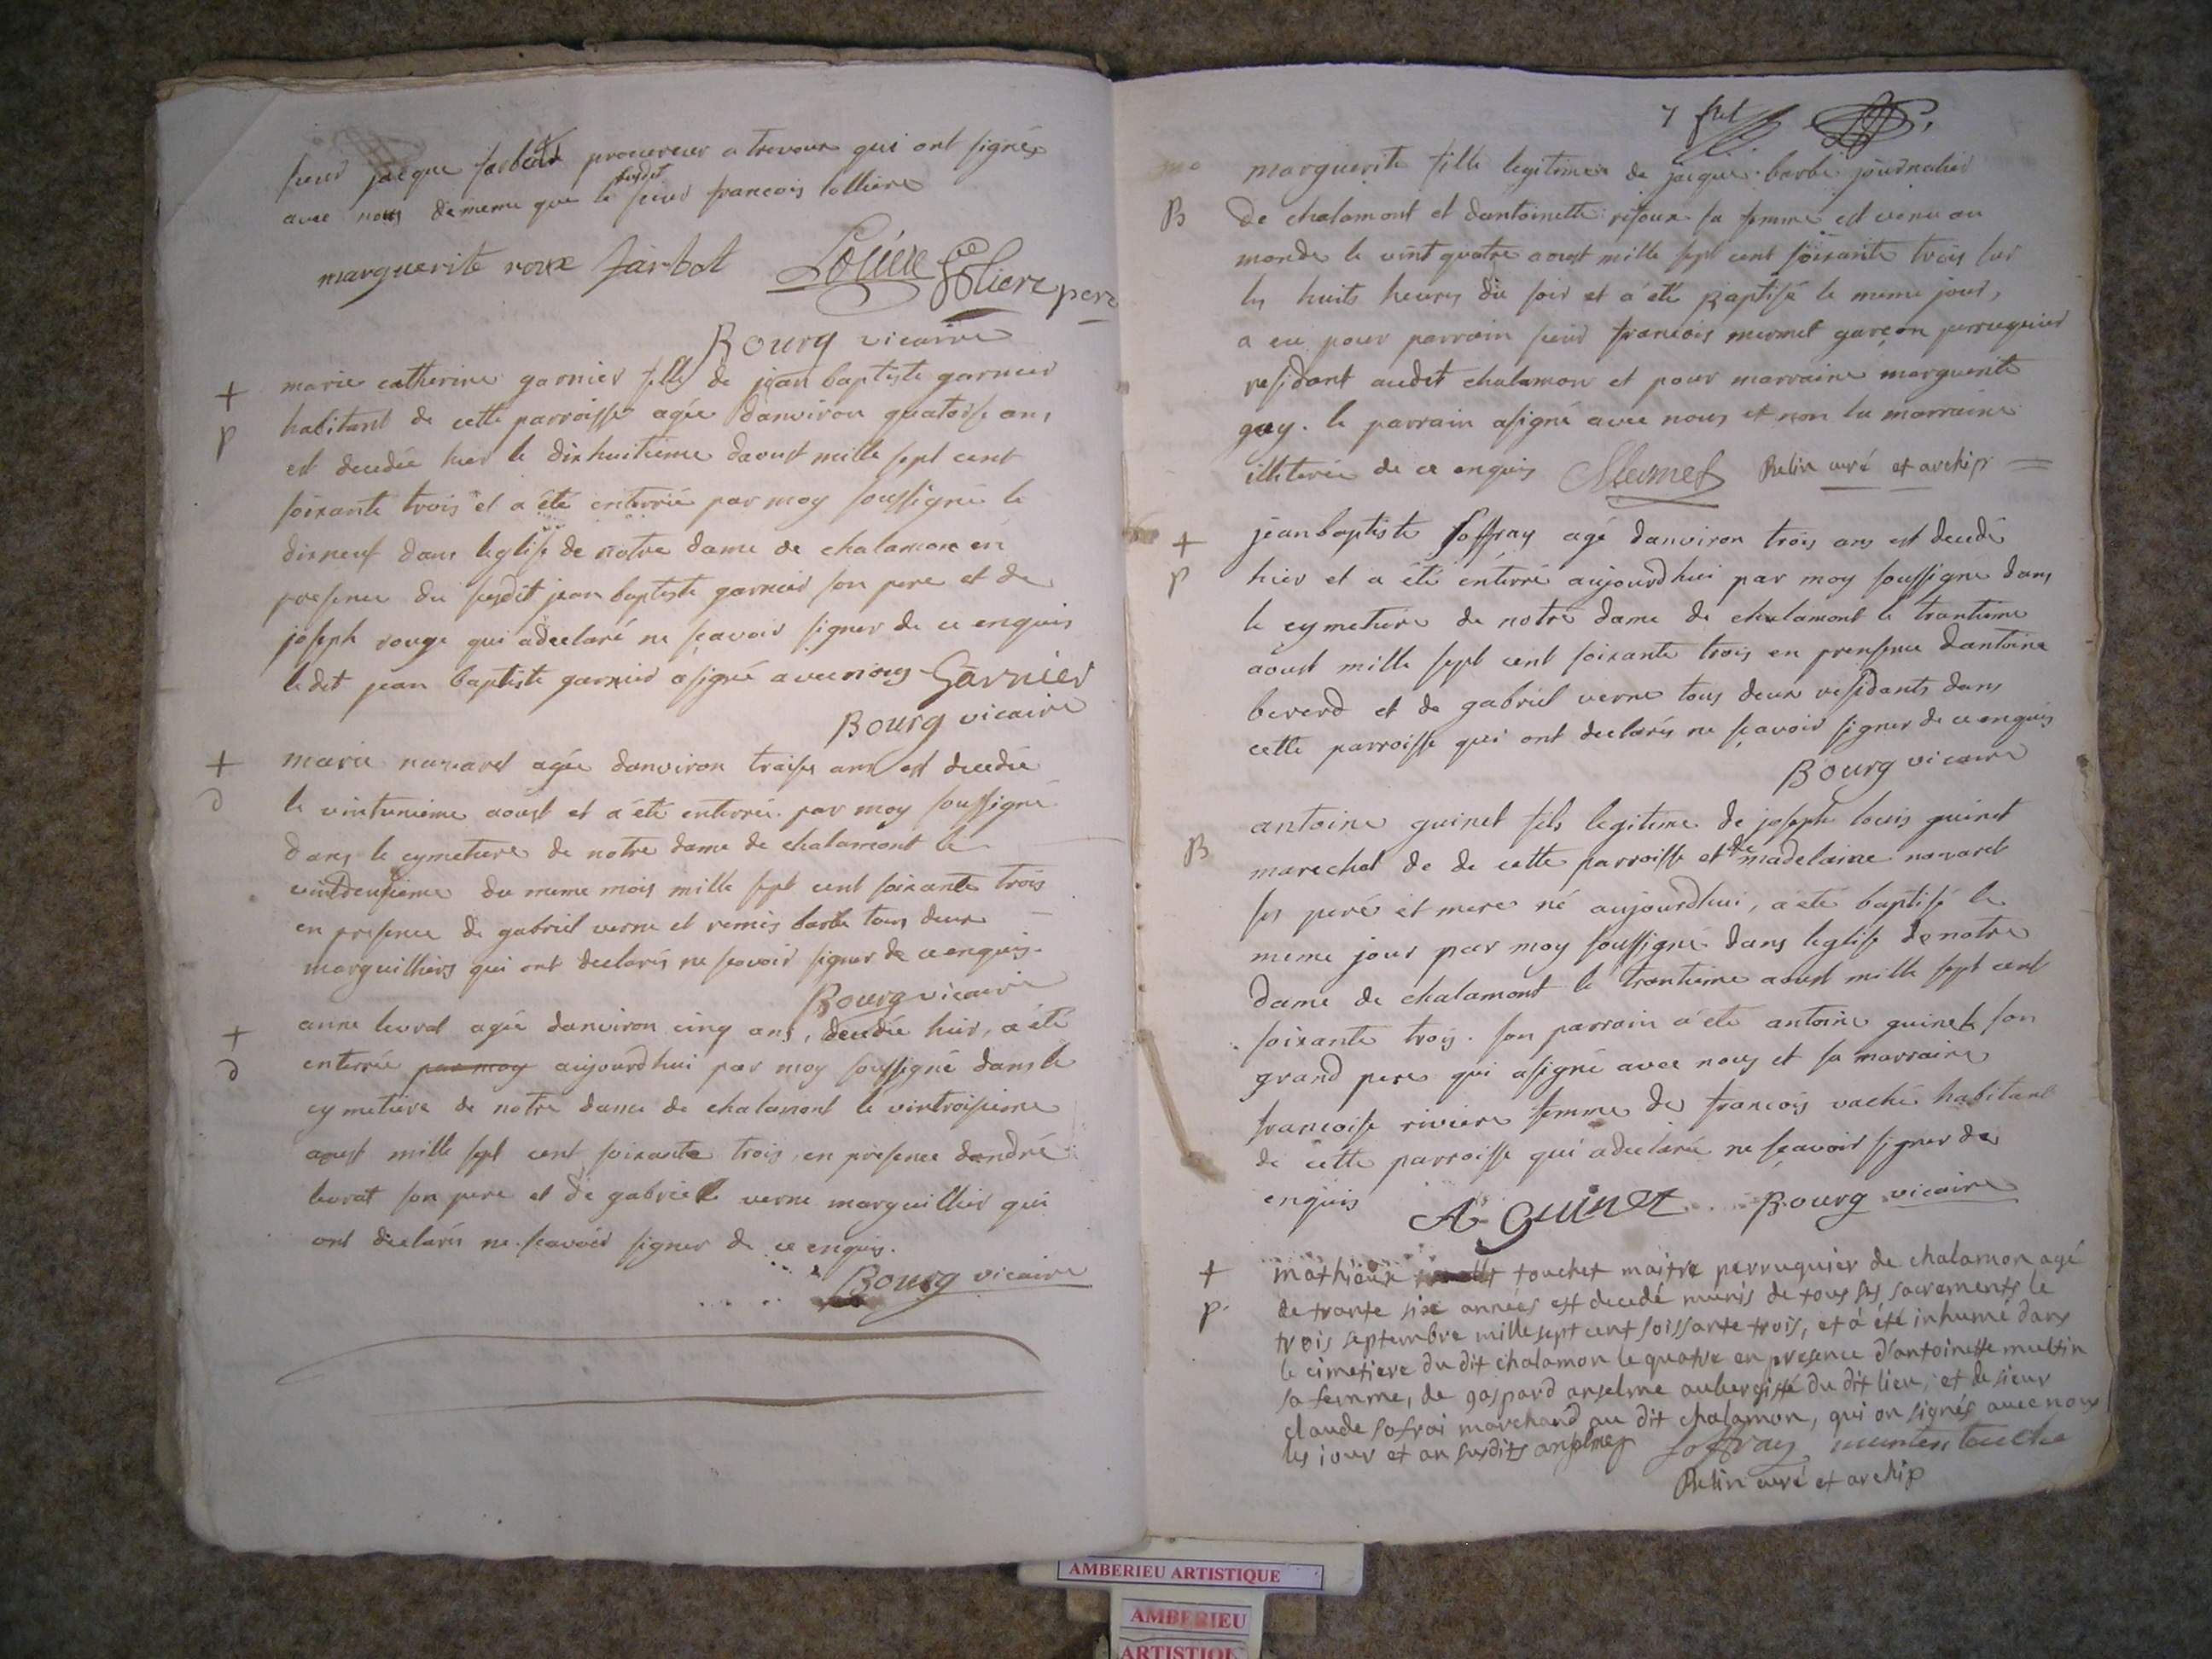 sieur jacque jarbot procureur a trevoux qui ont signés
avec nous de meme que le susdit sieur francois lolliere
marguerite roux Jarbot Loliere Loliere pere
Bourg vicaire
+ marie catherine garnier fille de jean baptiste garnier
p habitant de cette parroisse agée danviron quatorse ans
est decedée hier le dixhuitieme daoust mille sept cent
soixante trois et a été enterrée par moy soussigné le
dixneuf dans leglise de notre dame de chalamon en
presence du susdit jean baptiste garnier son pere et de
joseph rouge qui adeclaré ne sçavoir signer de ce enquis
ledit jean baptiste garnier asigné avec nous Garnier
Bourg vicaire
+ marie navarel agée danviron traise ans est decedée
d le vintunieme aoust et a été enterrée par moy soussigné
dans le cymetiere de notre dame de chalamont le
vintdeusieme du meme mois mille sept cent soixante trois
en presence de gabriel verne et remis barbe tous deux
marguilliers qui ont declarés ne scavoir signer de ce enquis.
Bourg vicaire
+ anne levrat agée danviron cinq ans, decedée hier, a été
d enterrée par moy aujourdhui par moy soussigné dans le
cymetiere de notre dame de chalamont le vintroisieme
aoust mille sept cent soixante trois en presence dandré
levrat son pere et de gabriel verne marguillier qui
ont declarés ne scavoir signer de ce enquis.
Bourg vicaire
7
marguerite fille legitime de jacque barbe journalier
B de chalamont et dantoinette rejoux sa femme est venu au
monde le vint quatre aoust mille sept cent soixante trois sur
les huits heures du soir et a été Baptisé le meme jour,
a eu pour parrain sieur francois mermet garçon perruquier
residant audit chalamon et pour marraine marguerite
guy. le parrain asigné avec nous et non la marraine
illiterée de ce enquis Mermet Belin curé et archip
+ jeanbaptiste soffray agé danviron trois ans est decedé
p hier et a été enterré aujourdhui par moy soussigné dans
le cymetiere de notre dame de chalamont le trantieme
aoust mille sept cent soixante trois en presence dantoine
beverd et de gabriel verne tous deux residants dans
cette parroisse qui ont declarés ne sçavoir signer de ce enquis
Bourg vicaire
antoine guinet fils legitime de joseph louis guinet
B marechal de de cette parroisse et de madelaine navarel
ses pere et mere né aujourdhui, a été baptisé le
meme jour par moy soussigné dans leglise de notre
dame de chalamont le trantieme aoust mille sept cent
soixante trois. son parrain a été antoine guinet son
grand pere qui asigné avec nous et sa marraine
francoise riviere femme de francois vaché habitant
de cette parroisse qui adeclarée ne sçavoir signer de
enquis A Guinet Bourg vicaire
+ mathieux touchet maitre perruquier de chalamon agé
p. de trante six années est decedé munis de tous ses sacrements le
trois septembre mille sept cent soissante trois, et a été inhumé dans
le cimetiere du dit chalamon le quatre en presence d'antoinette multin
sa femme, de gaspard anselme aubergiste du dit lieu, et de sieur
claude sofrai marchand au dit chalamon, qui on signés avec nous
les jour et an susdits anselme Soffray touche
Belin curé et archip
AMBERIEU ARTISTIQUE
AMBERIEU